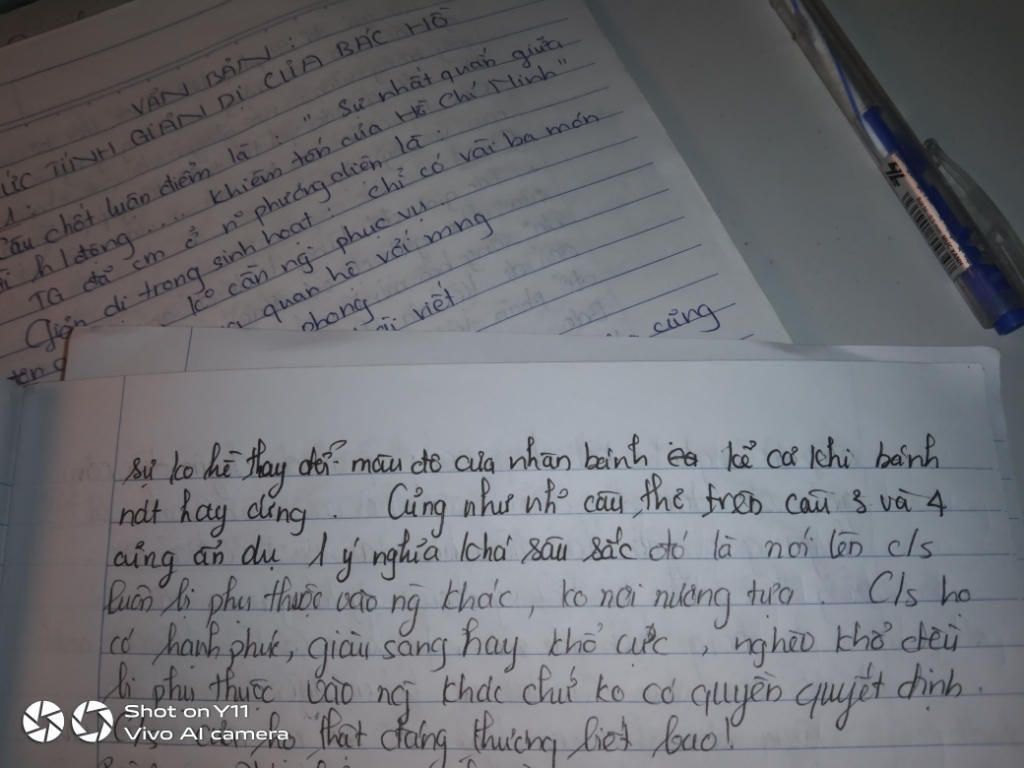 VĂN BẢN:
ỨC TÍNH GIẢN DỊ CỦA BÁC HỒ
1:
Câu chốt luận điểm là: "Sự nhất quán giữa
h/động... khiêm tốn của Hồ Chí Minh"
TG đã cm ở n~ phương diện là:
Giản dị trong sinh hoạt: chỉ có vài ba món
ko cần ng` phục vụ
quan hệ với mng
phong
viết
cũng
sự ko hề thay đổi màu đỏ của nhân bánh kể cả khi bánh
nát hay cứng. Cũng như n~ câu thơ trên câu 3 và 4
cũng ẩn dụ 1 ý nghĩa khá sâu sắc đó là nói lên c/s
luôn bị phụ thuộc vào ng` khác, ko nơi nương tựa. C/s họ
có hạnh phúc, giàu sang hay khổ cực, nghèo khổ đều
bị phụ thuộc vào ng` khác chứ ko có quyền quyết định.
C/s của họ thật đáng thương biết bao!
Shot on Y11
Vivo AI camera